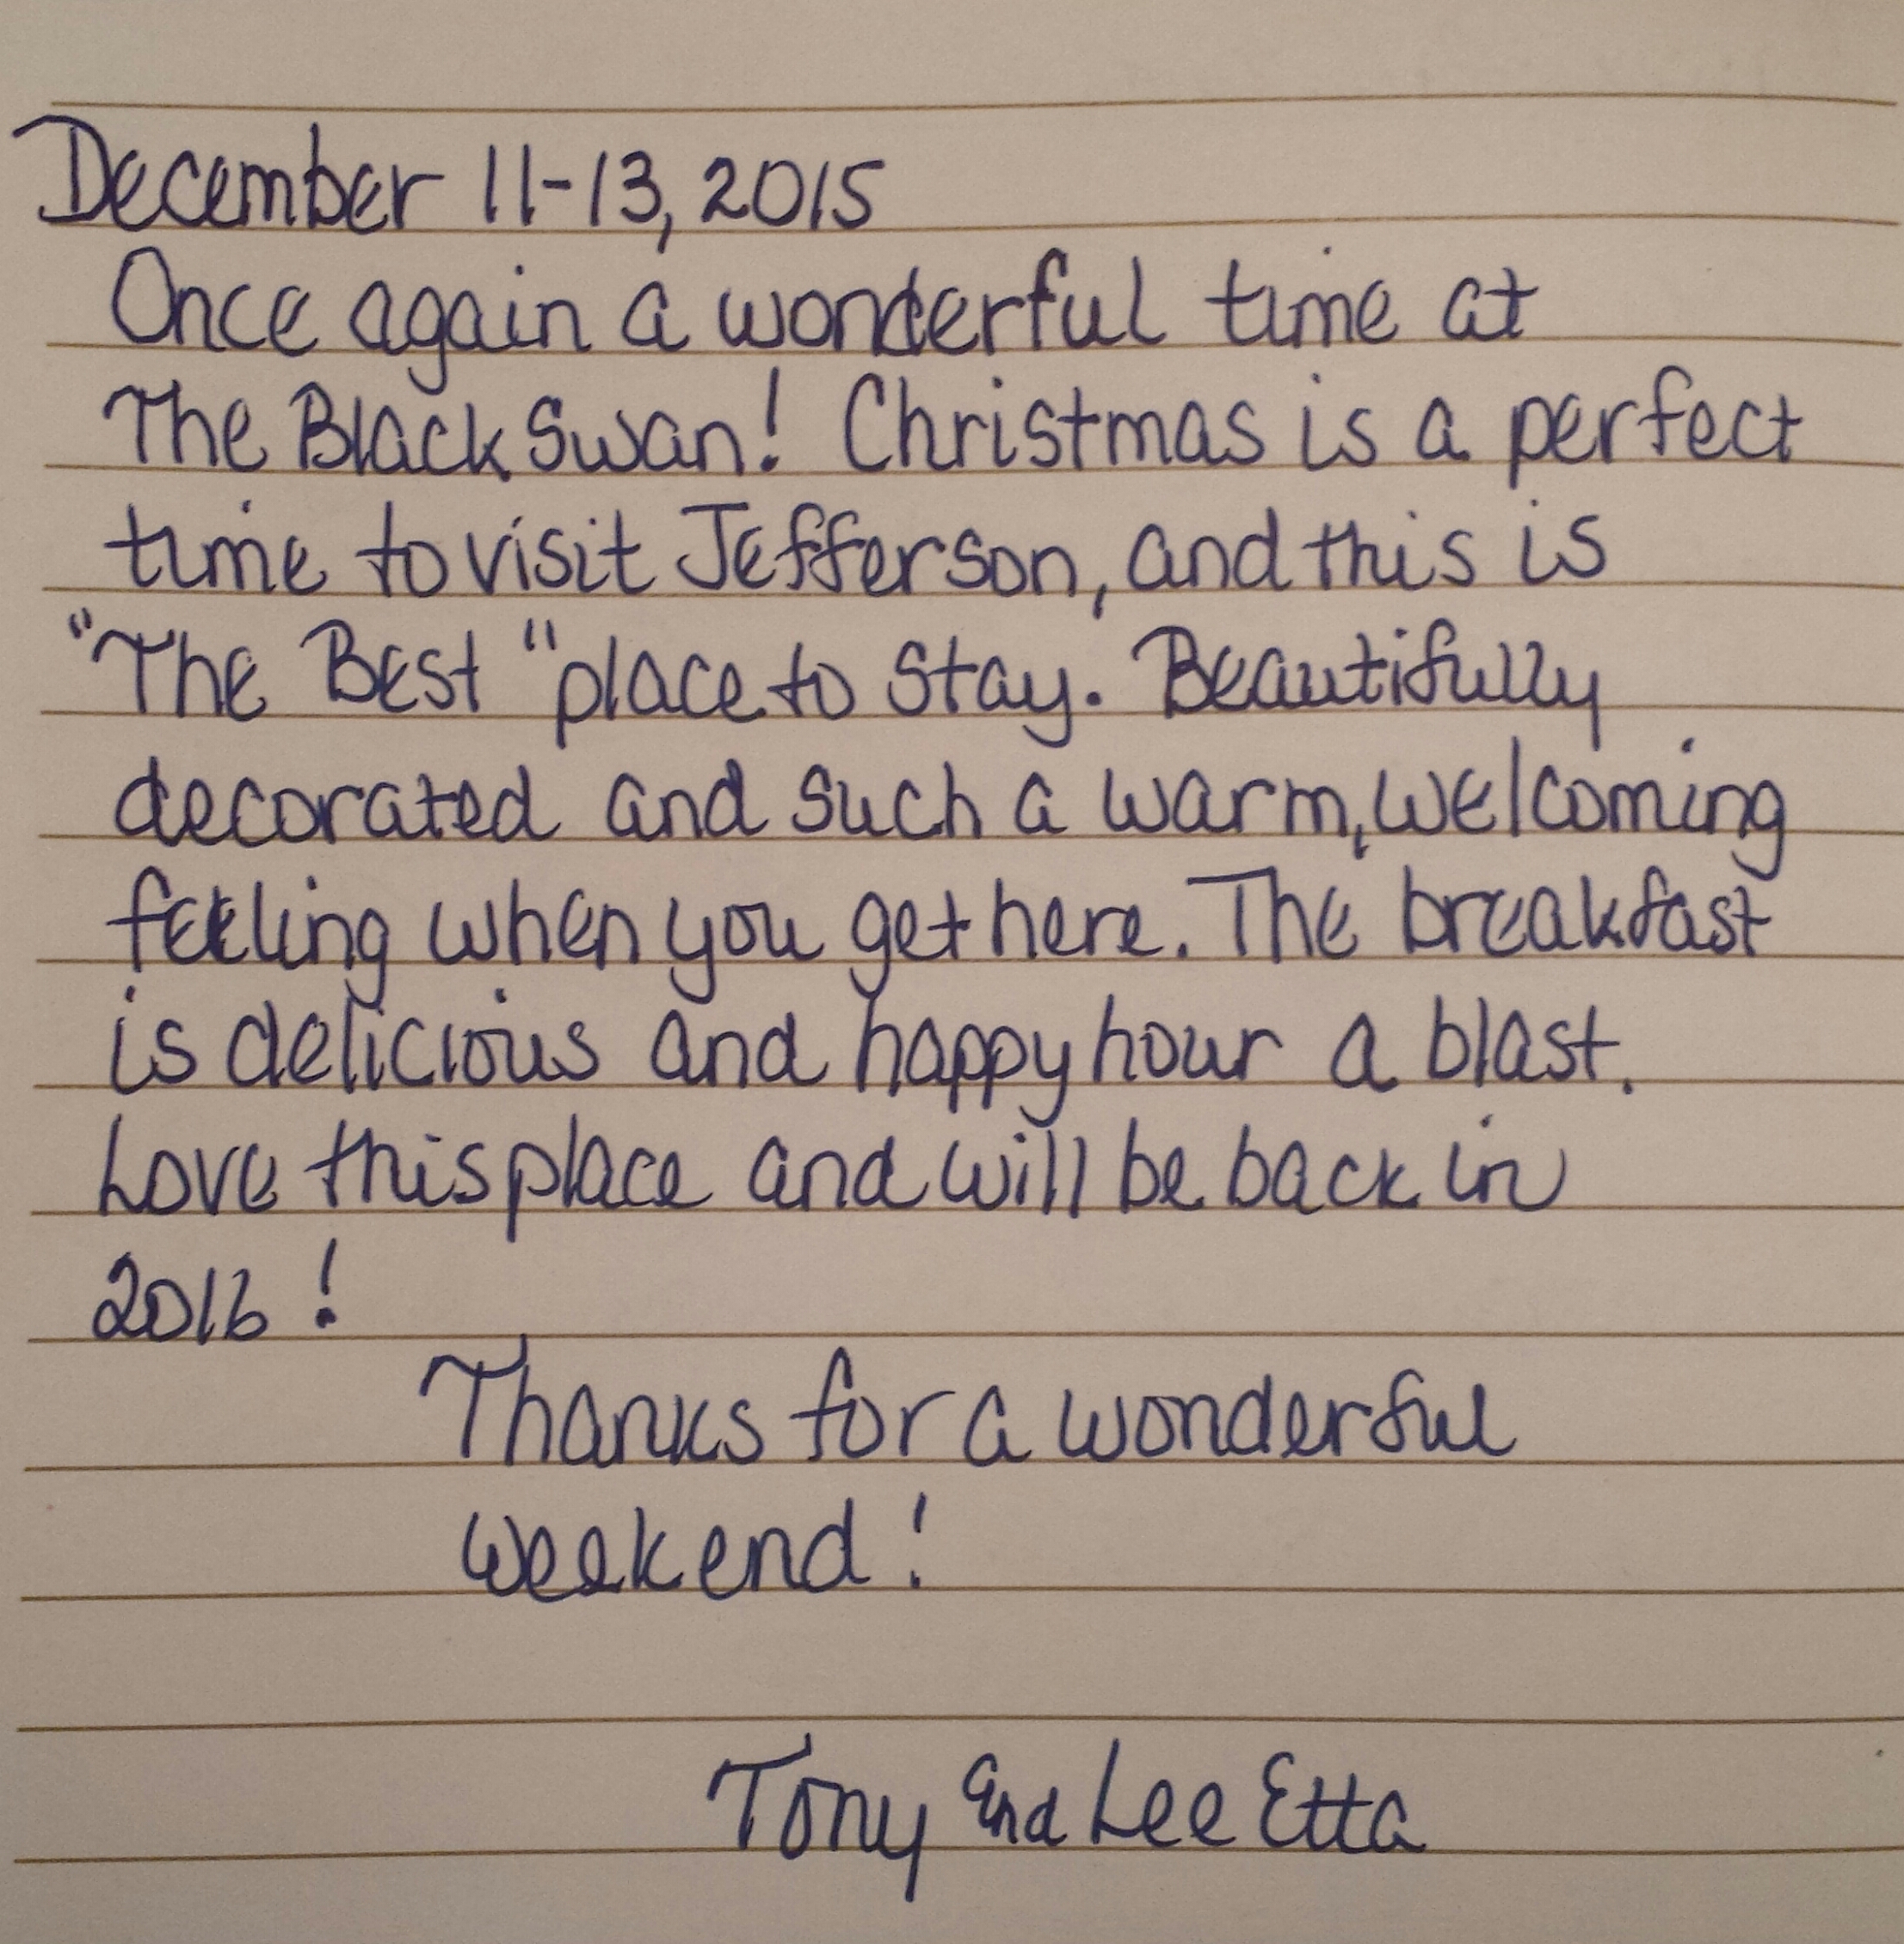 December 11-13, 2015
Once again a wonderful time at
The Black Swan! Christmas is a perfect
time to visit Jefferson, and this is
"The Best" place to stay. Beautifully
decorated and such a warm, welcoming
feeling when you get here. The breakfast
is delicious and happy hour a blast.
Love this place and will be back in
2016!
Thanks for a wonderful
weekend!
Tony and Lee Etta